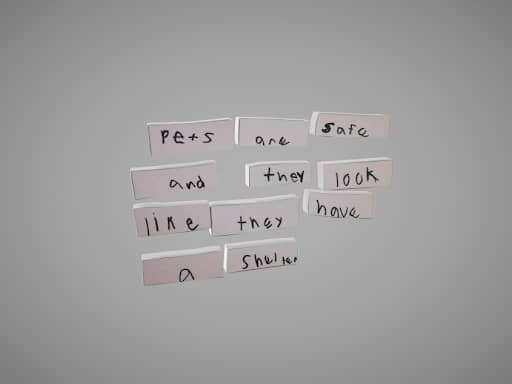 Pets are safe
and they look
like they have
a shelter